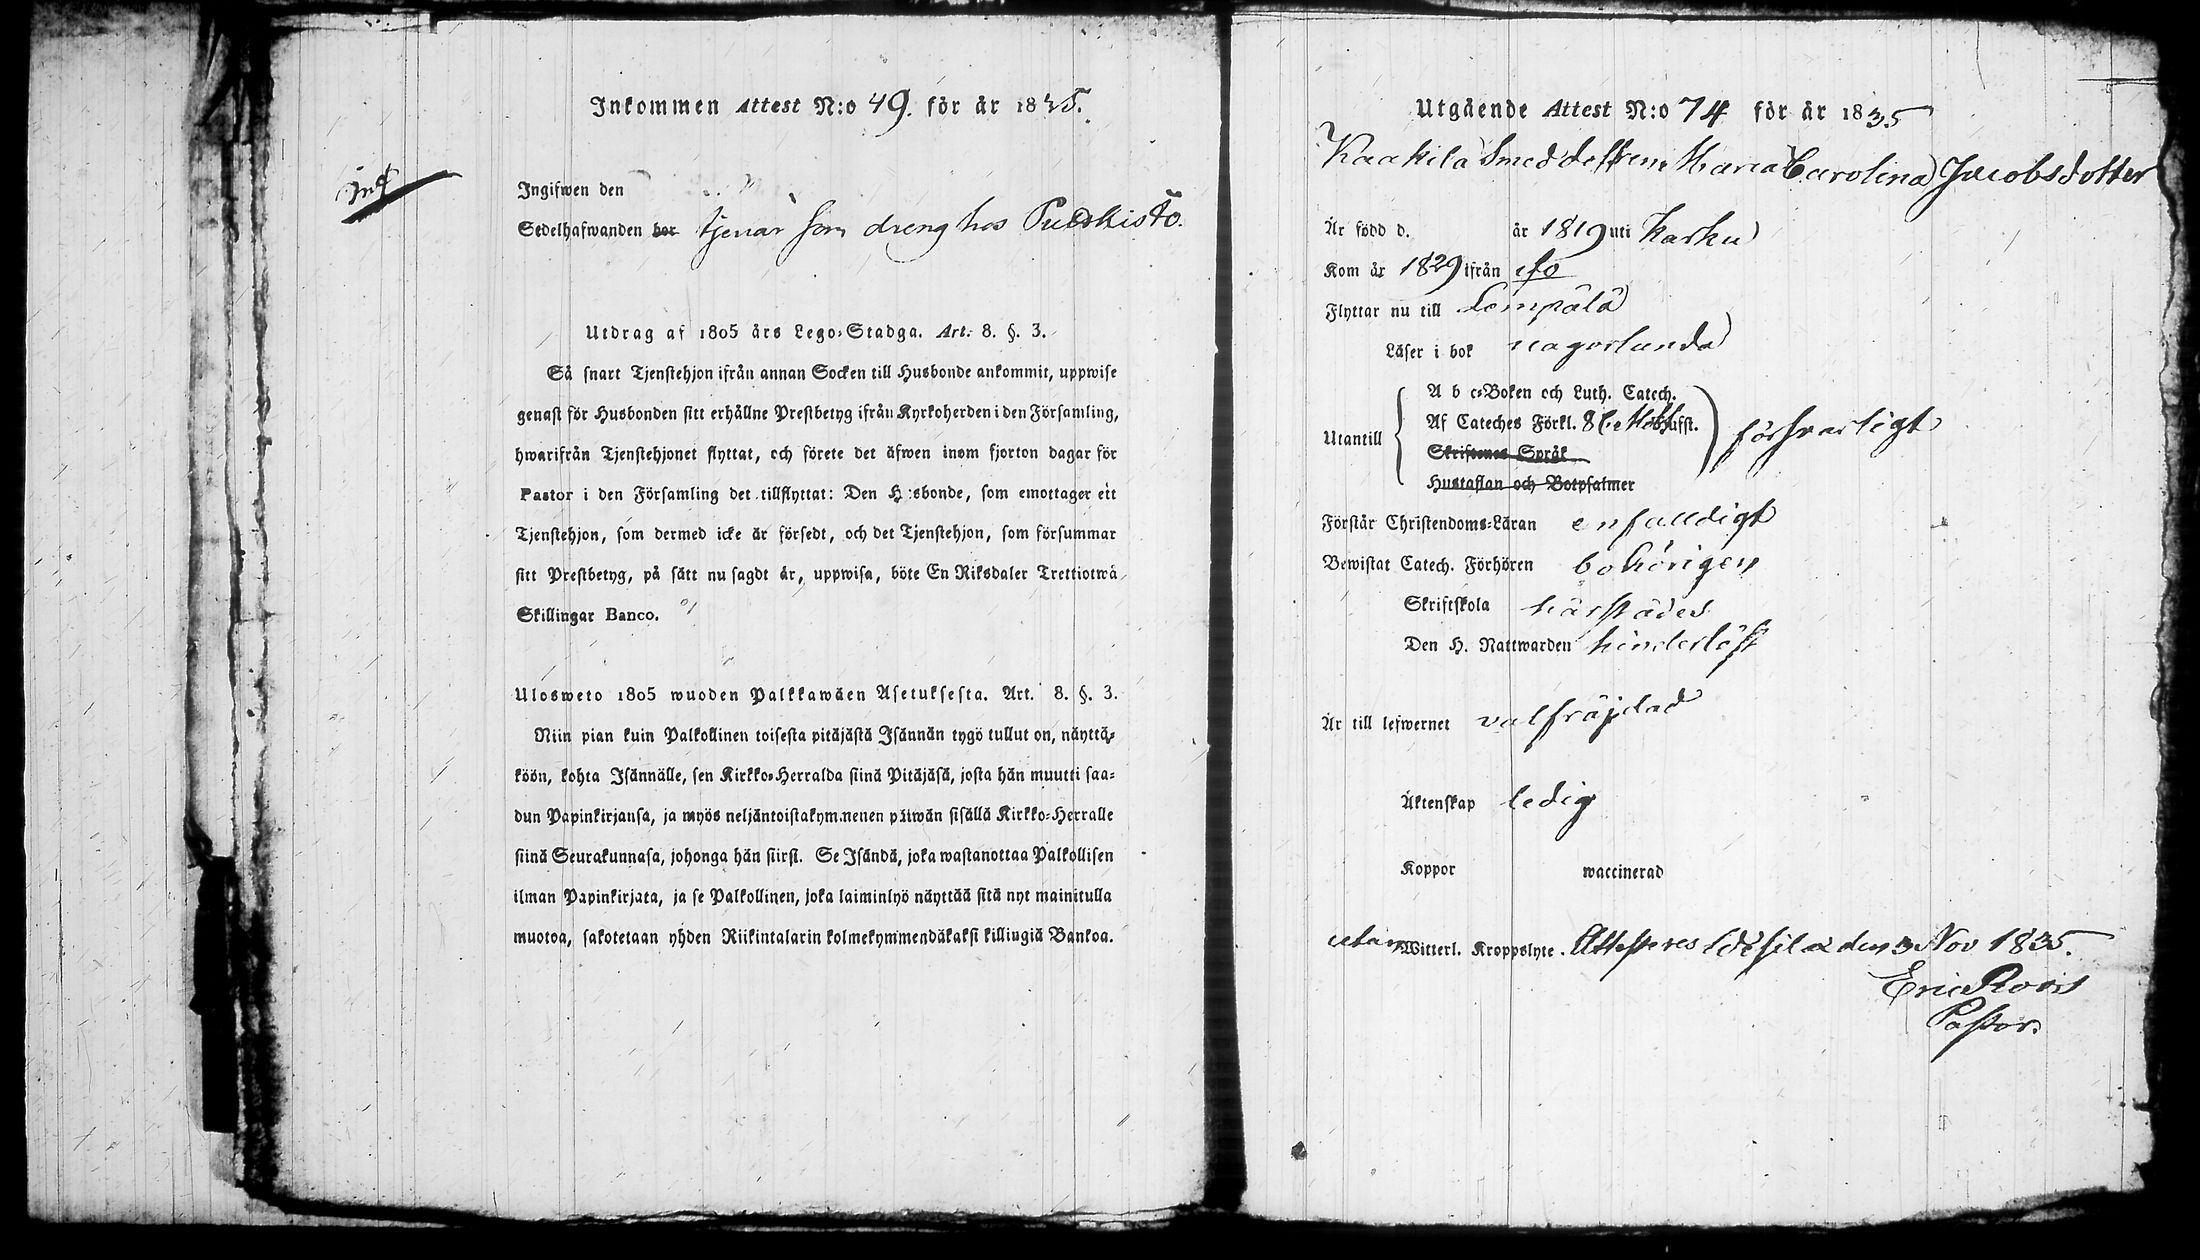 Inkommen Attest N:o 49. för år 1835.
Ingifwen den
Sedelhafwanden bor tjenar som dreng hos Puoskisto.
Utdrag af 1805 års Lego-Stadga. Art. 8. §. 3.
Så snart Tjenstehjon ifrån annan Socken till Husbonde ankommit, uppwise
genast för Husbonden sitt erhållne Prestbetyg ifrån Kyrkoherden i den Församling,
hwarifrån Tjenstehjonet flyttat, och förete det äfwen inom fjorton dagar för
Pastor i den Församling det tillflyttat: Den H:sbonde, som emottager ett
Tjenstehjon, som dermed icke är försedt, och det Tjenstehjon, som försummar
sitt Prestbetyg, på sätt nu sagdt är, uppwisa, böte En Riksdaler Trettiotwå
Skillingar Banco.
Ulosweto 1805 wuoden Palkkawäen Asetuksesta. Art. 8. §. 3.
Niin pian kuin Palkollinen toisesta pitäjästä Isännän tygö tullut on, näyttä-
köön, kohta Isännälle, sen Kirkko-Herralda siinä Pitäjäsä, josta hän muutti saa-
dun Papinkirjansa, ja myös neljäntoistakymmenen päiwän sisällä Kirkko-Herralle
siinä Seurakunnasa, johonga hän siirsi. Se Isändä, joka wastanottaa Palkollisen
ilman Papinkirjata, ja se Palkollinen, joka laiminlyö näyttää sitä nyt mainitulla
muotoa, sakotetaan yhden Riikintalarin kolmekymmendäkaksi killingiä Bankoa.
Utgående Attest N:o 74 för år 1835
Kaakila Smeddottren Maria Carolina Jacobsdotter
Är född d. år 1819 uti Karku
Kom år 1829 ifrån
Flyttar nu till Lempälä
Läser i bok någorlunda
Utantill
A b c-Boken och Luth. Catech.
Af Cateches Förkl. 8 Hufst.
Skriftenes Språk
Hustaflan och Botpsalmer
försvarligt
Förstår Christendoms-Läran enfalldigt
Bewistat Catech. Förhören behörigen
Skriftskola härstädes
Den H. Nattwarden hinderlöst
Är till lefwernet välfräjdad
Äktenskap ledig
Koppor waccinerad
utan Witterl. Kroppslyte. Attesteres den 3 Nov 1835.
Eric Roos
Pastor.